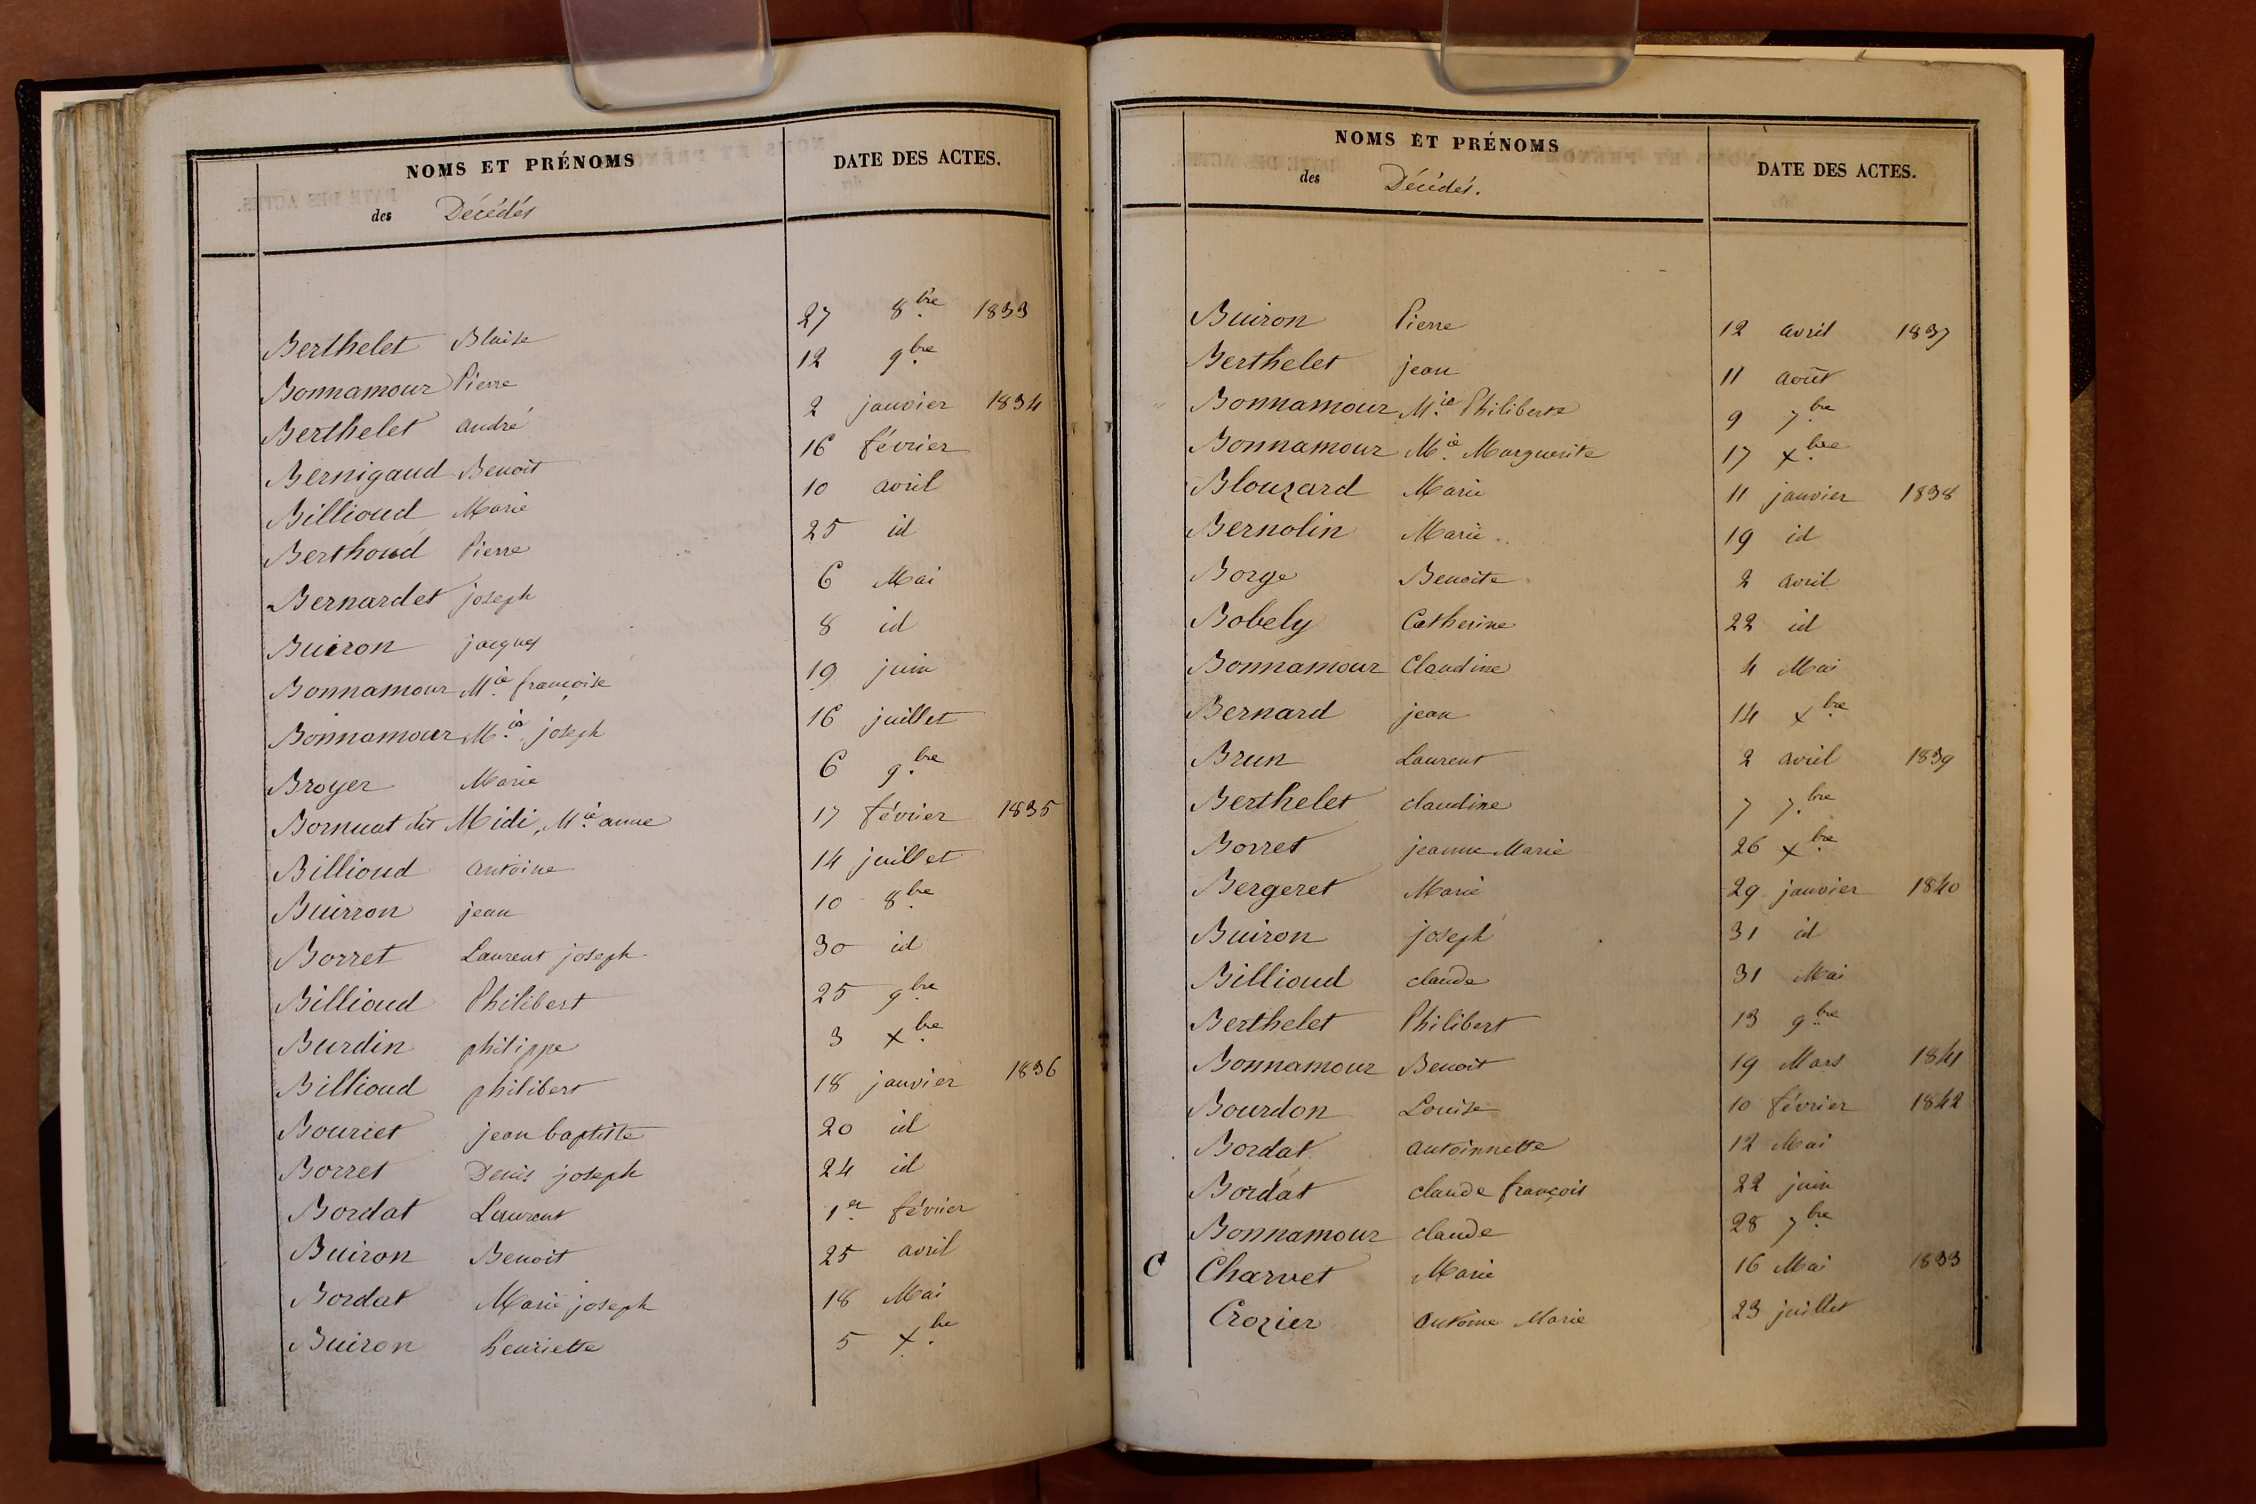 NOMS ET PRÉNOMS
des Décédés
DATE DES ACTES.
Berthelet Blaise 27 8bre 1833
Bonnamour Pierre 12 9bre
Berthelet andré 2 janvier 1834
Bernigaud Benoit 16 février
Billioud Marie 10 avril
Berthoud Pierre 25 id
Bernardet joseph 6 Mai
Buiron jacques 8 id
Bonnamour Mie françoise 19 juin
Bonnamour Mie joseph 16 juillet
Broyer Marie 6 9bre
Bornuat dit Midi, Mie anne 17 février 1835
Billioud antoine 14 juillet
Buirron jean 10 8bre
Borret Laurent joseph 30 id
Billioud Philibert 25 9bre
Burdin philippe 3 xbre
Billioud philibert 18 janvier 1836
Bouriet jean baptiste 20 id
Borret Denis joseph 24 id
Bordat Laurent 1er février
Buiron Benoit 25 avril
Bordat Marie joseph 18 Mai
Buiron henriette 5 xbre
NOMS ET PRÉNOMS
des Décédés.
DATE DES ACTES.
Buiron Pierre 12 avril 1837
Berthelet jean 11 août
Bonnamour Mie Philiberte 9 7bre
Bonnamour Mie Marguerite 17 xbre
Blouzard Marie 11 janvier 1838
Bernolin Marie 19 id
Borge Benoite 2 avril
Bobely Catherine 22 id
Bonnamour Claudine 4 Mai
Bernard jean 14 xbre
Brun Laurent 2 avril 1839
Berthelet claudine 7 7bre
Borret jeanne Marie 26 xbre
Bergeret Marie 29 janvier 1840
Buiron joseph 31 id
Billioud claude 31 Mai
Berthelet Philibert 13 9bre
Bonnamour Benoit 19 Mars 1841
Bourdon Louise 10 février 1842
Bordat antoinnette 12 Mai
Bordat claude françois 22 juin
Bonnamour claude 28 7bre
C Charvet Marie 16 Mai 1833
Crozier antoine Marie 23 juillet